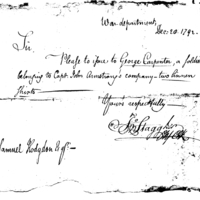 War department,
Dec: 20. 1792.
Sir,
Please to issue to George Carpenter, a soldier
belonging to Capt. John Armstrong's company - two linnen
shirts
Yours respectfully
Jo Stagg Jr
Samuel Hodgdon Esqr -